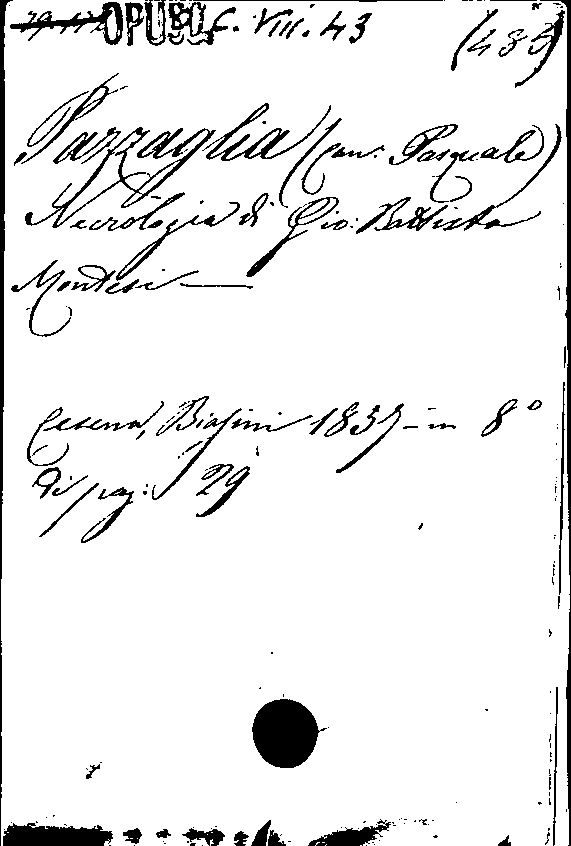 OPUSC. F. VIII. 43 (485)
Pazzaglia (Can: Pasquale)
Necrologia di Gio: Battista
Montesi —
Cesena, Biasini 1835 — in 8°
di pag: 29